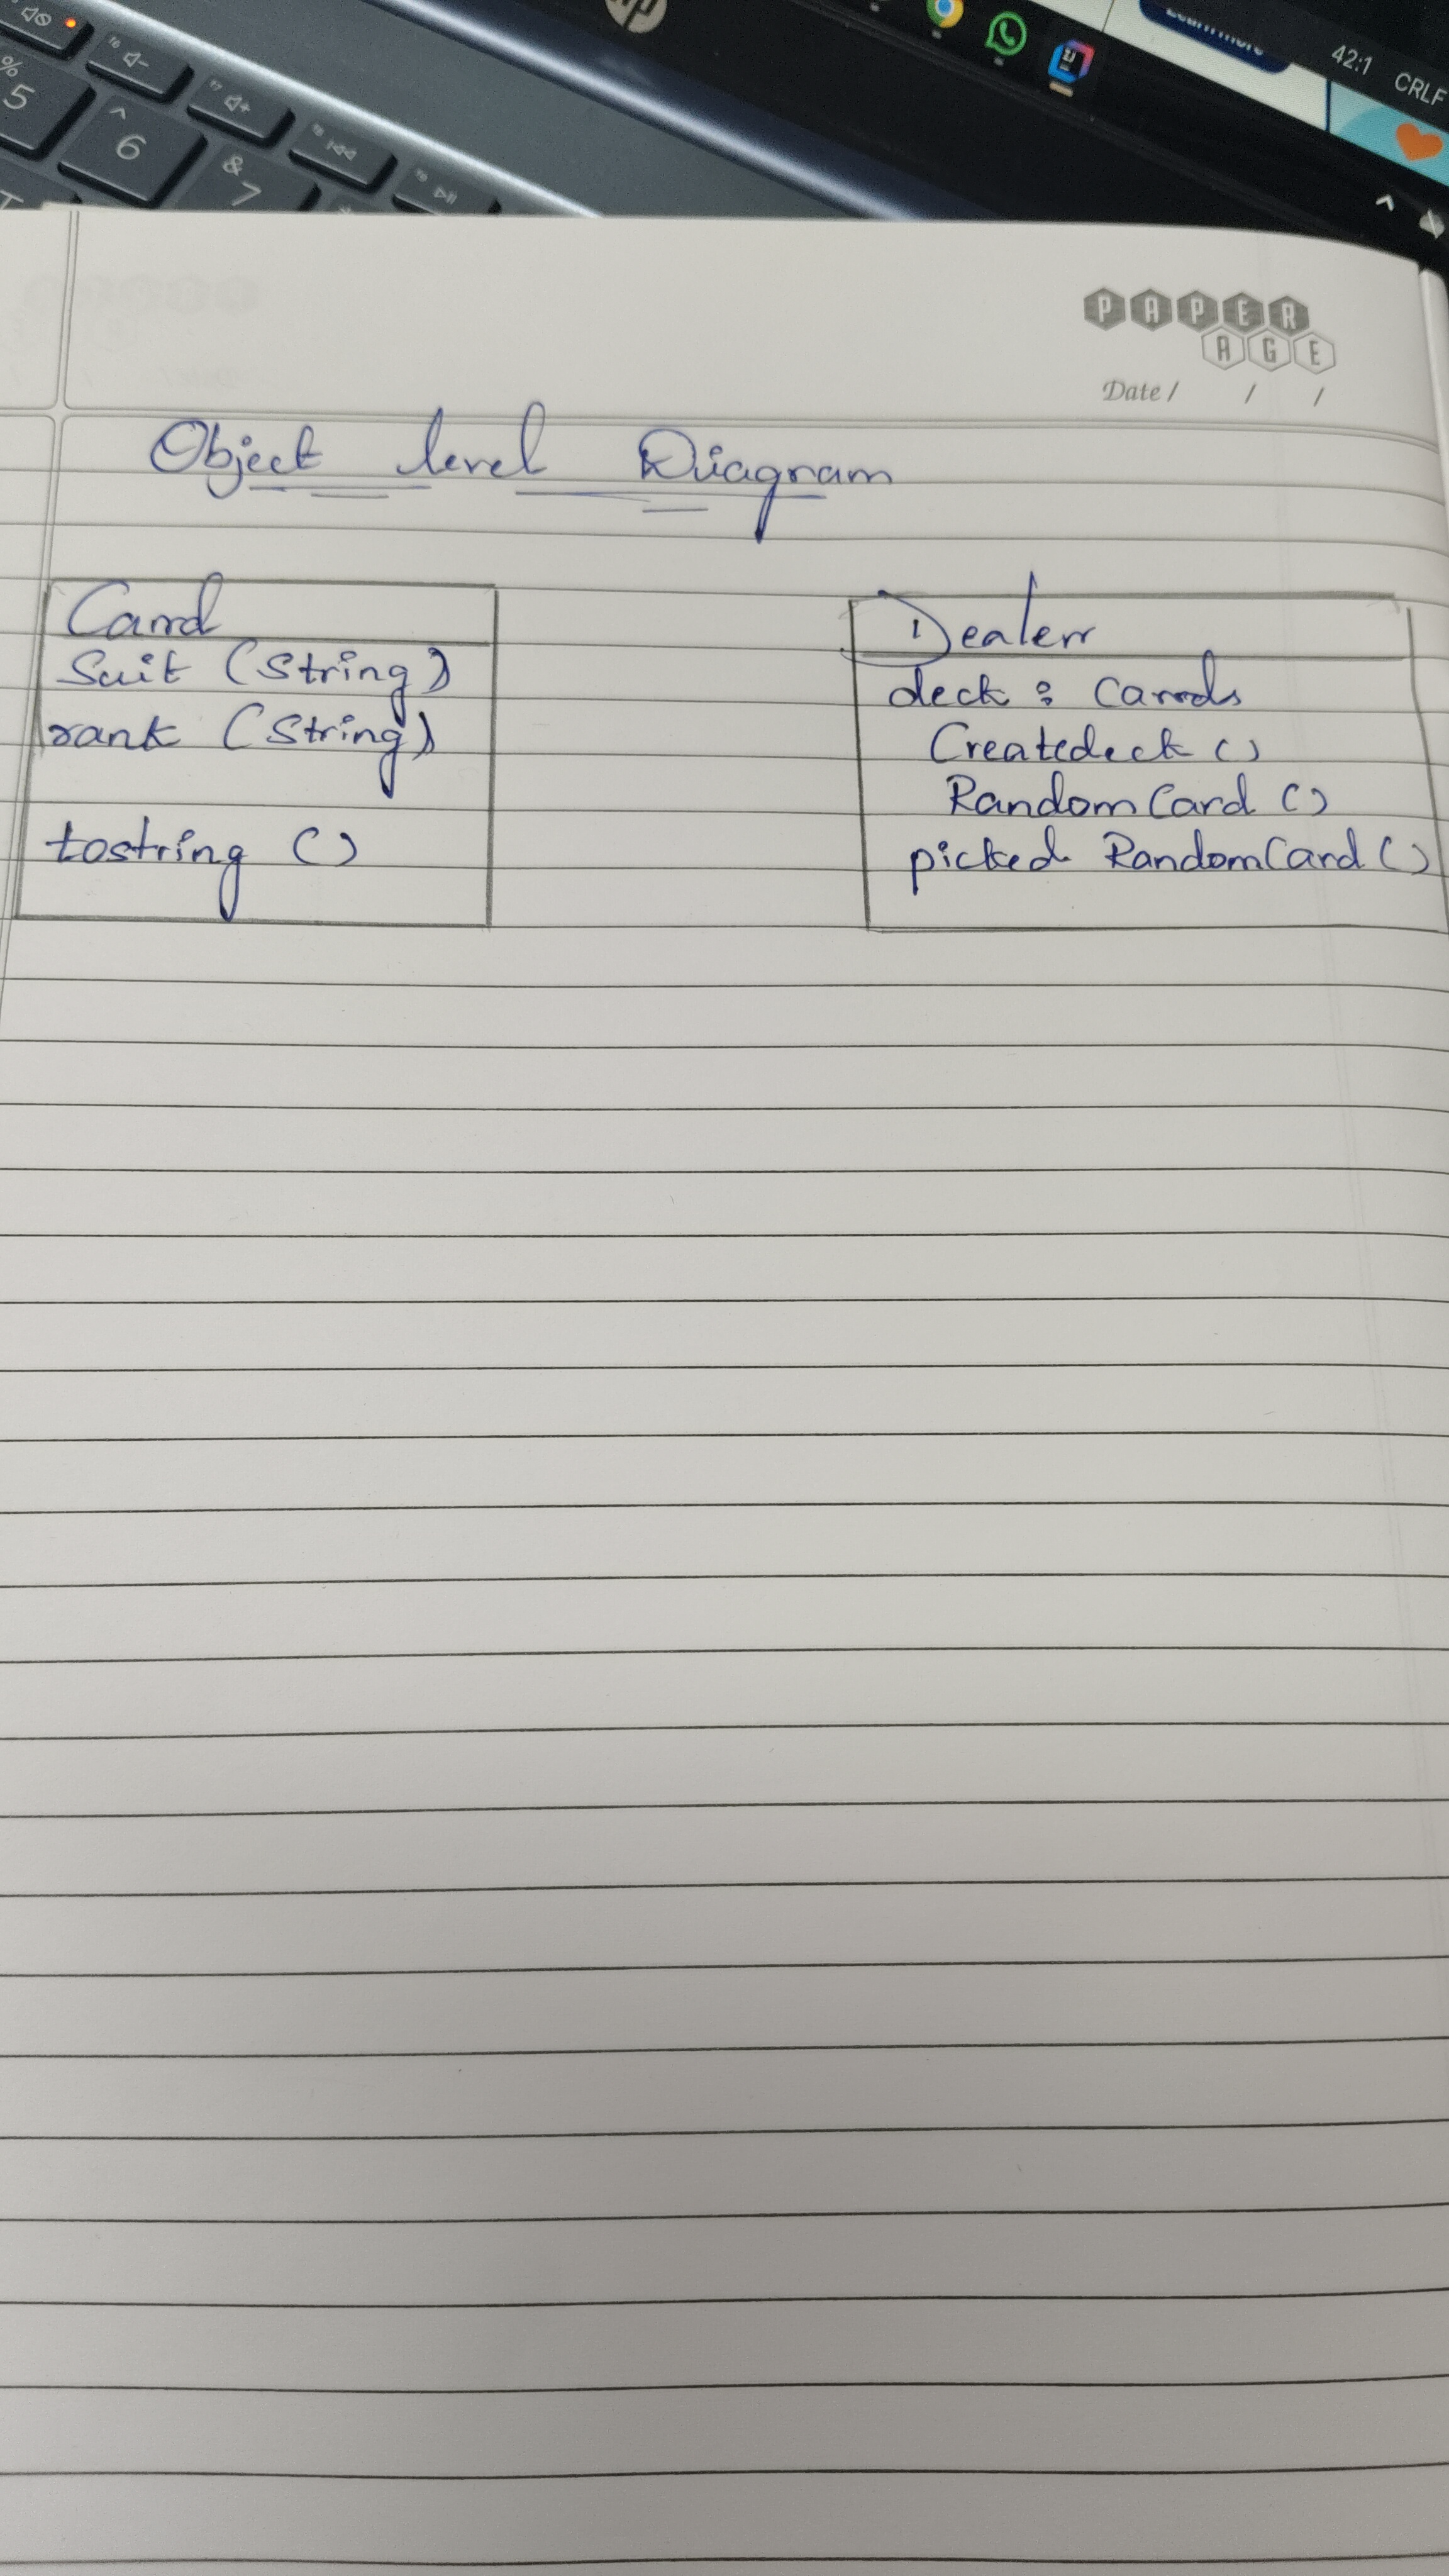 %
5
^
6
&
7
hp
Learn more
42:1 CRLF
PAPER
AGE
Date / / /
Object level Diagram
Card
Suit (String)
rank (String)
tostring ()
Dealer
deck : Cards
Createdeck ()
Random Card ()
picked RandomCard ()